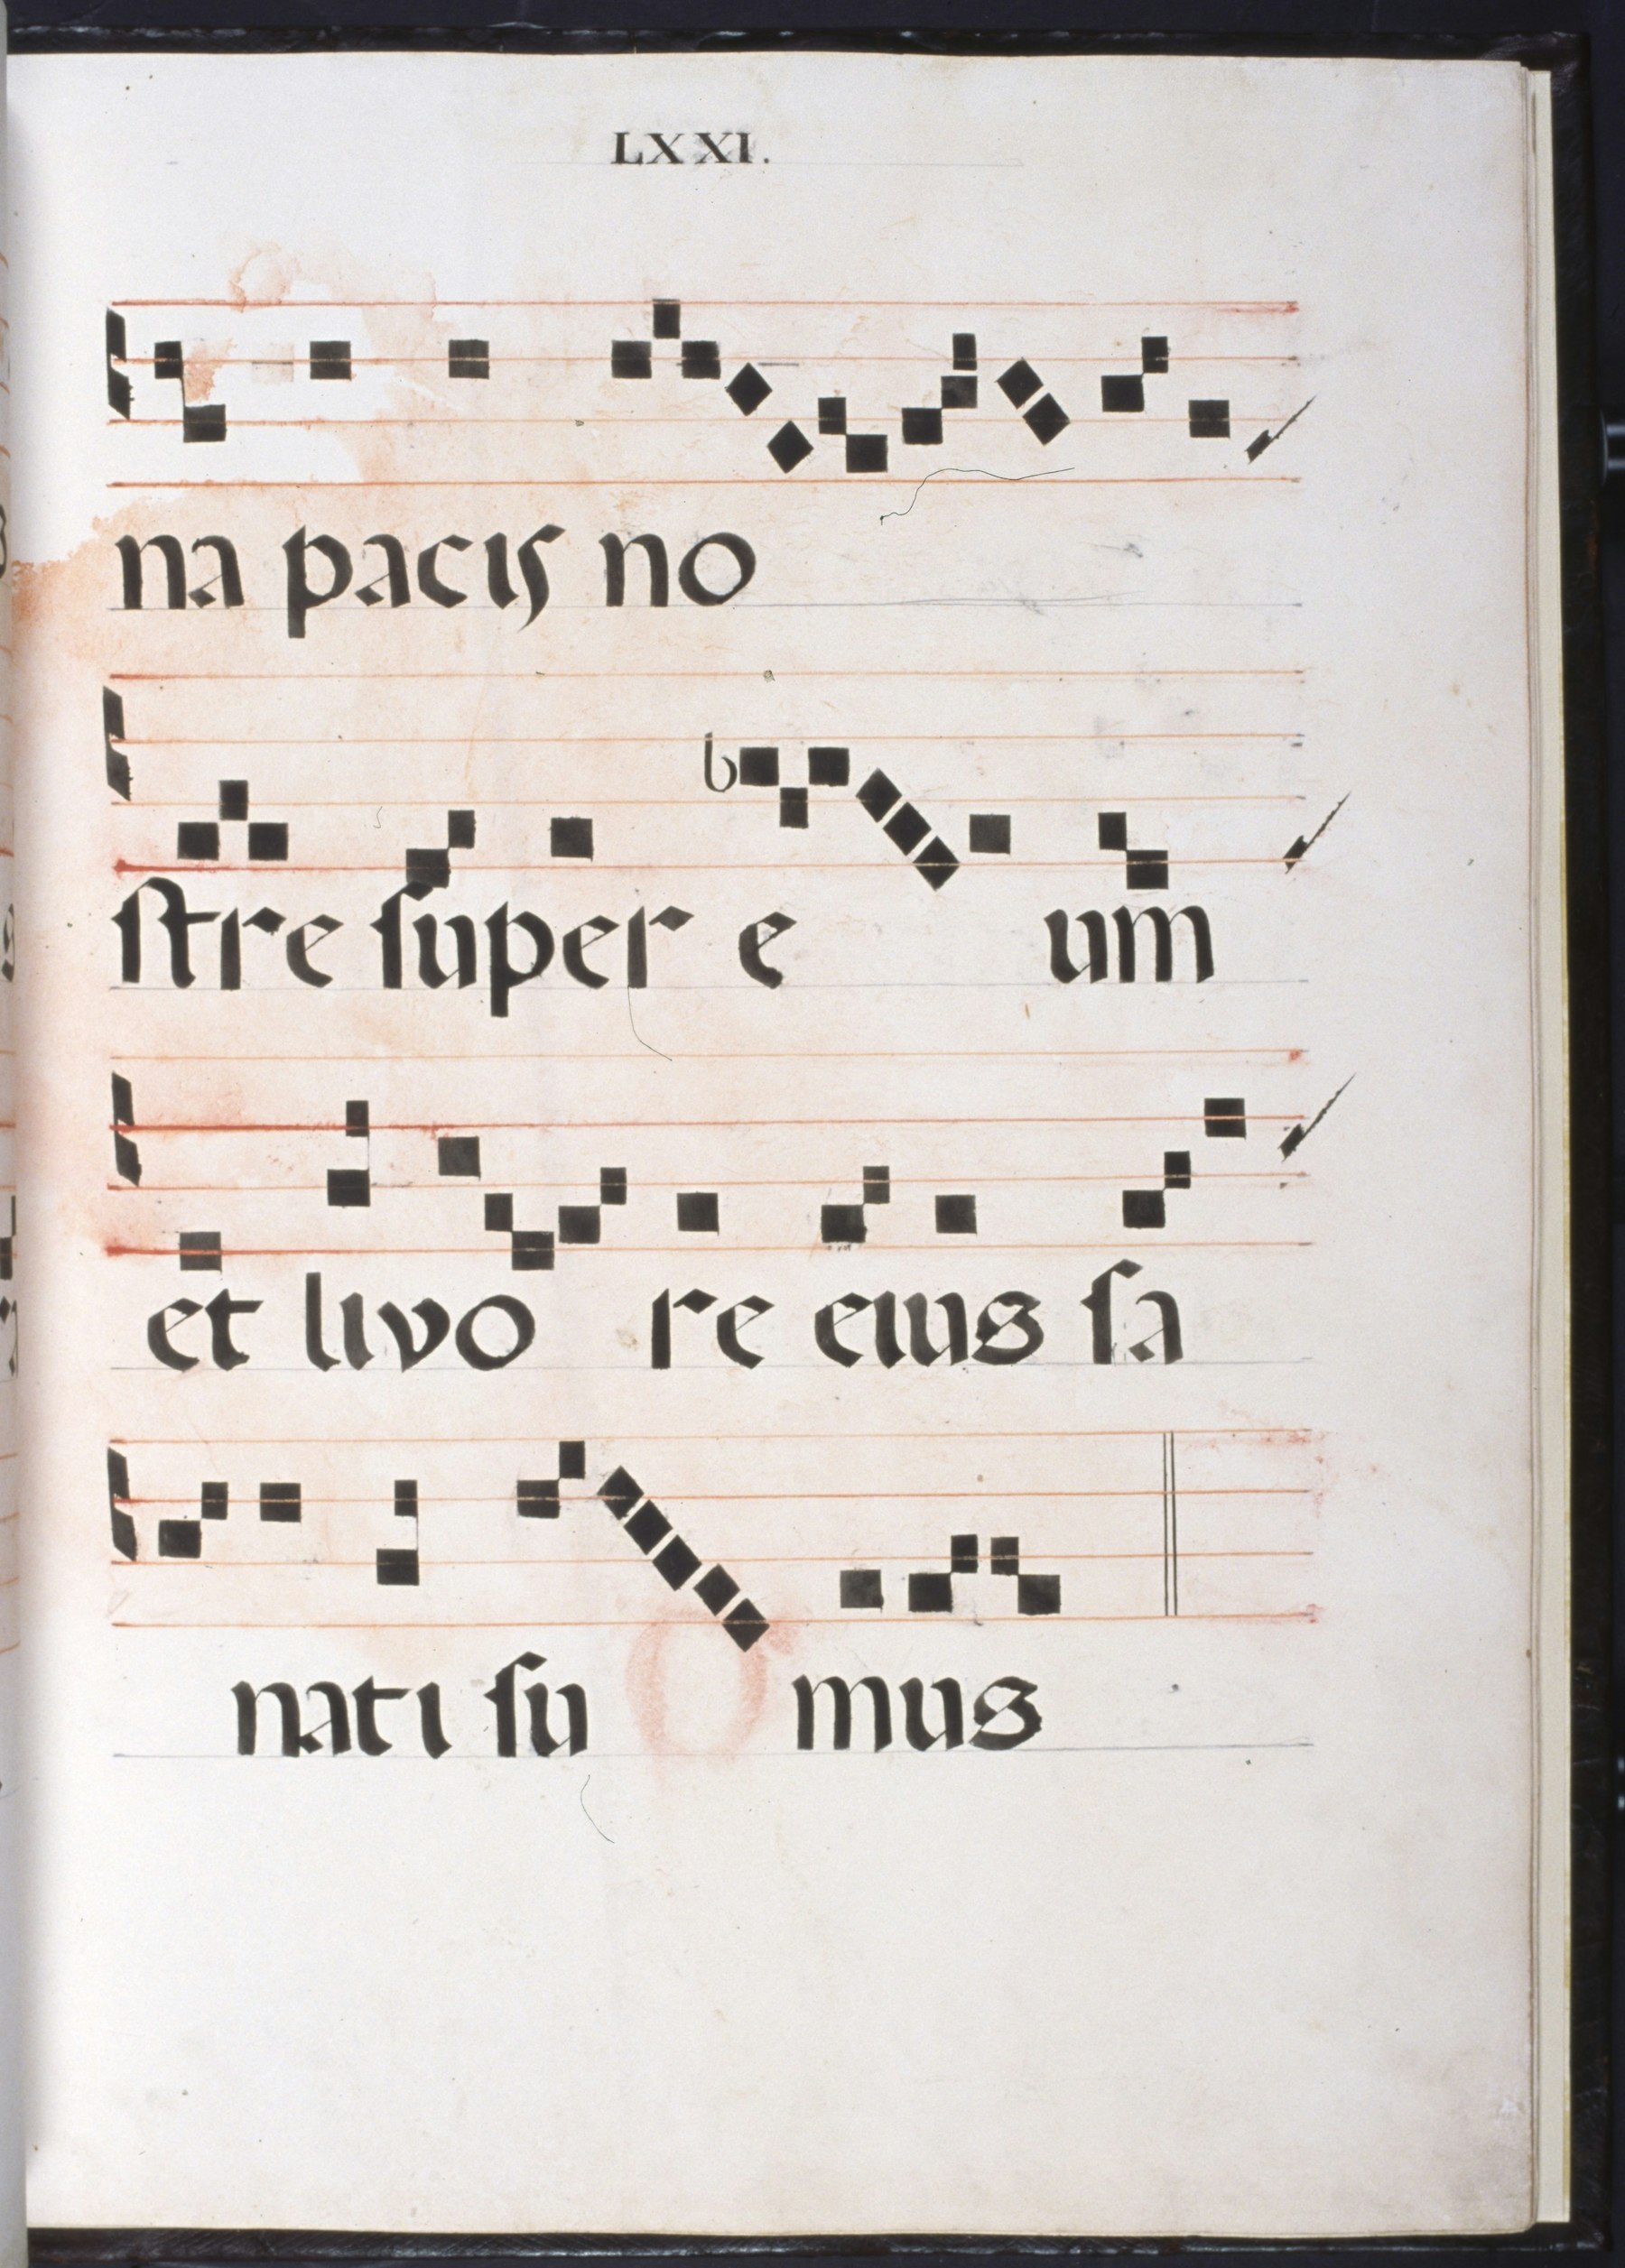 LXXI.
na pacis no
ſtre ſuper e um
et livo re eius ſa
nati ſu mus